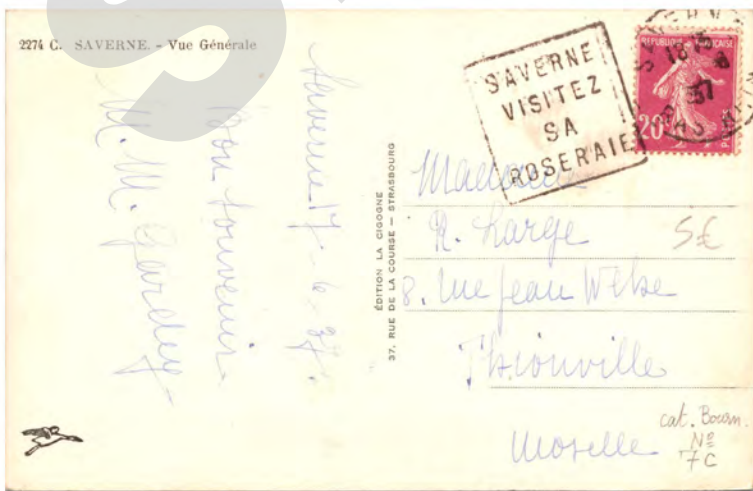 2274 C. SAVERNE. - Vue Générale
Saverne 17-6-37.
Bon souvenir
M. M. Gardey
ÉDITION LA CIGOGNE
37. RUE DE LA COURSE — STRASBOURG
SAVERNE
VISITEZ
SA
ROSERAIE
SAVERNE
18 15
37
BAS-RHIN
REPUBLIQUE FRANÇAISE
20
POSTES
Madame
R. Large
8. rue Jean
Thionville
Moselle
5€
cat. Bourn.
Nº
7C